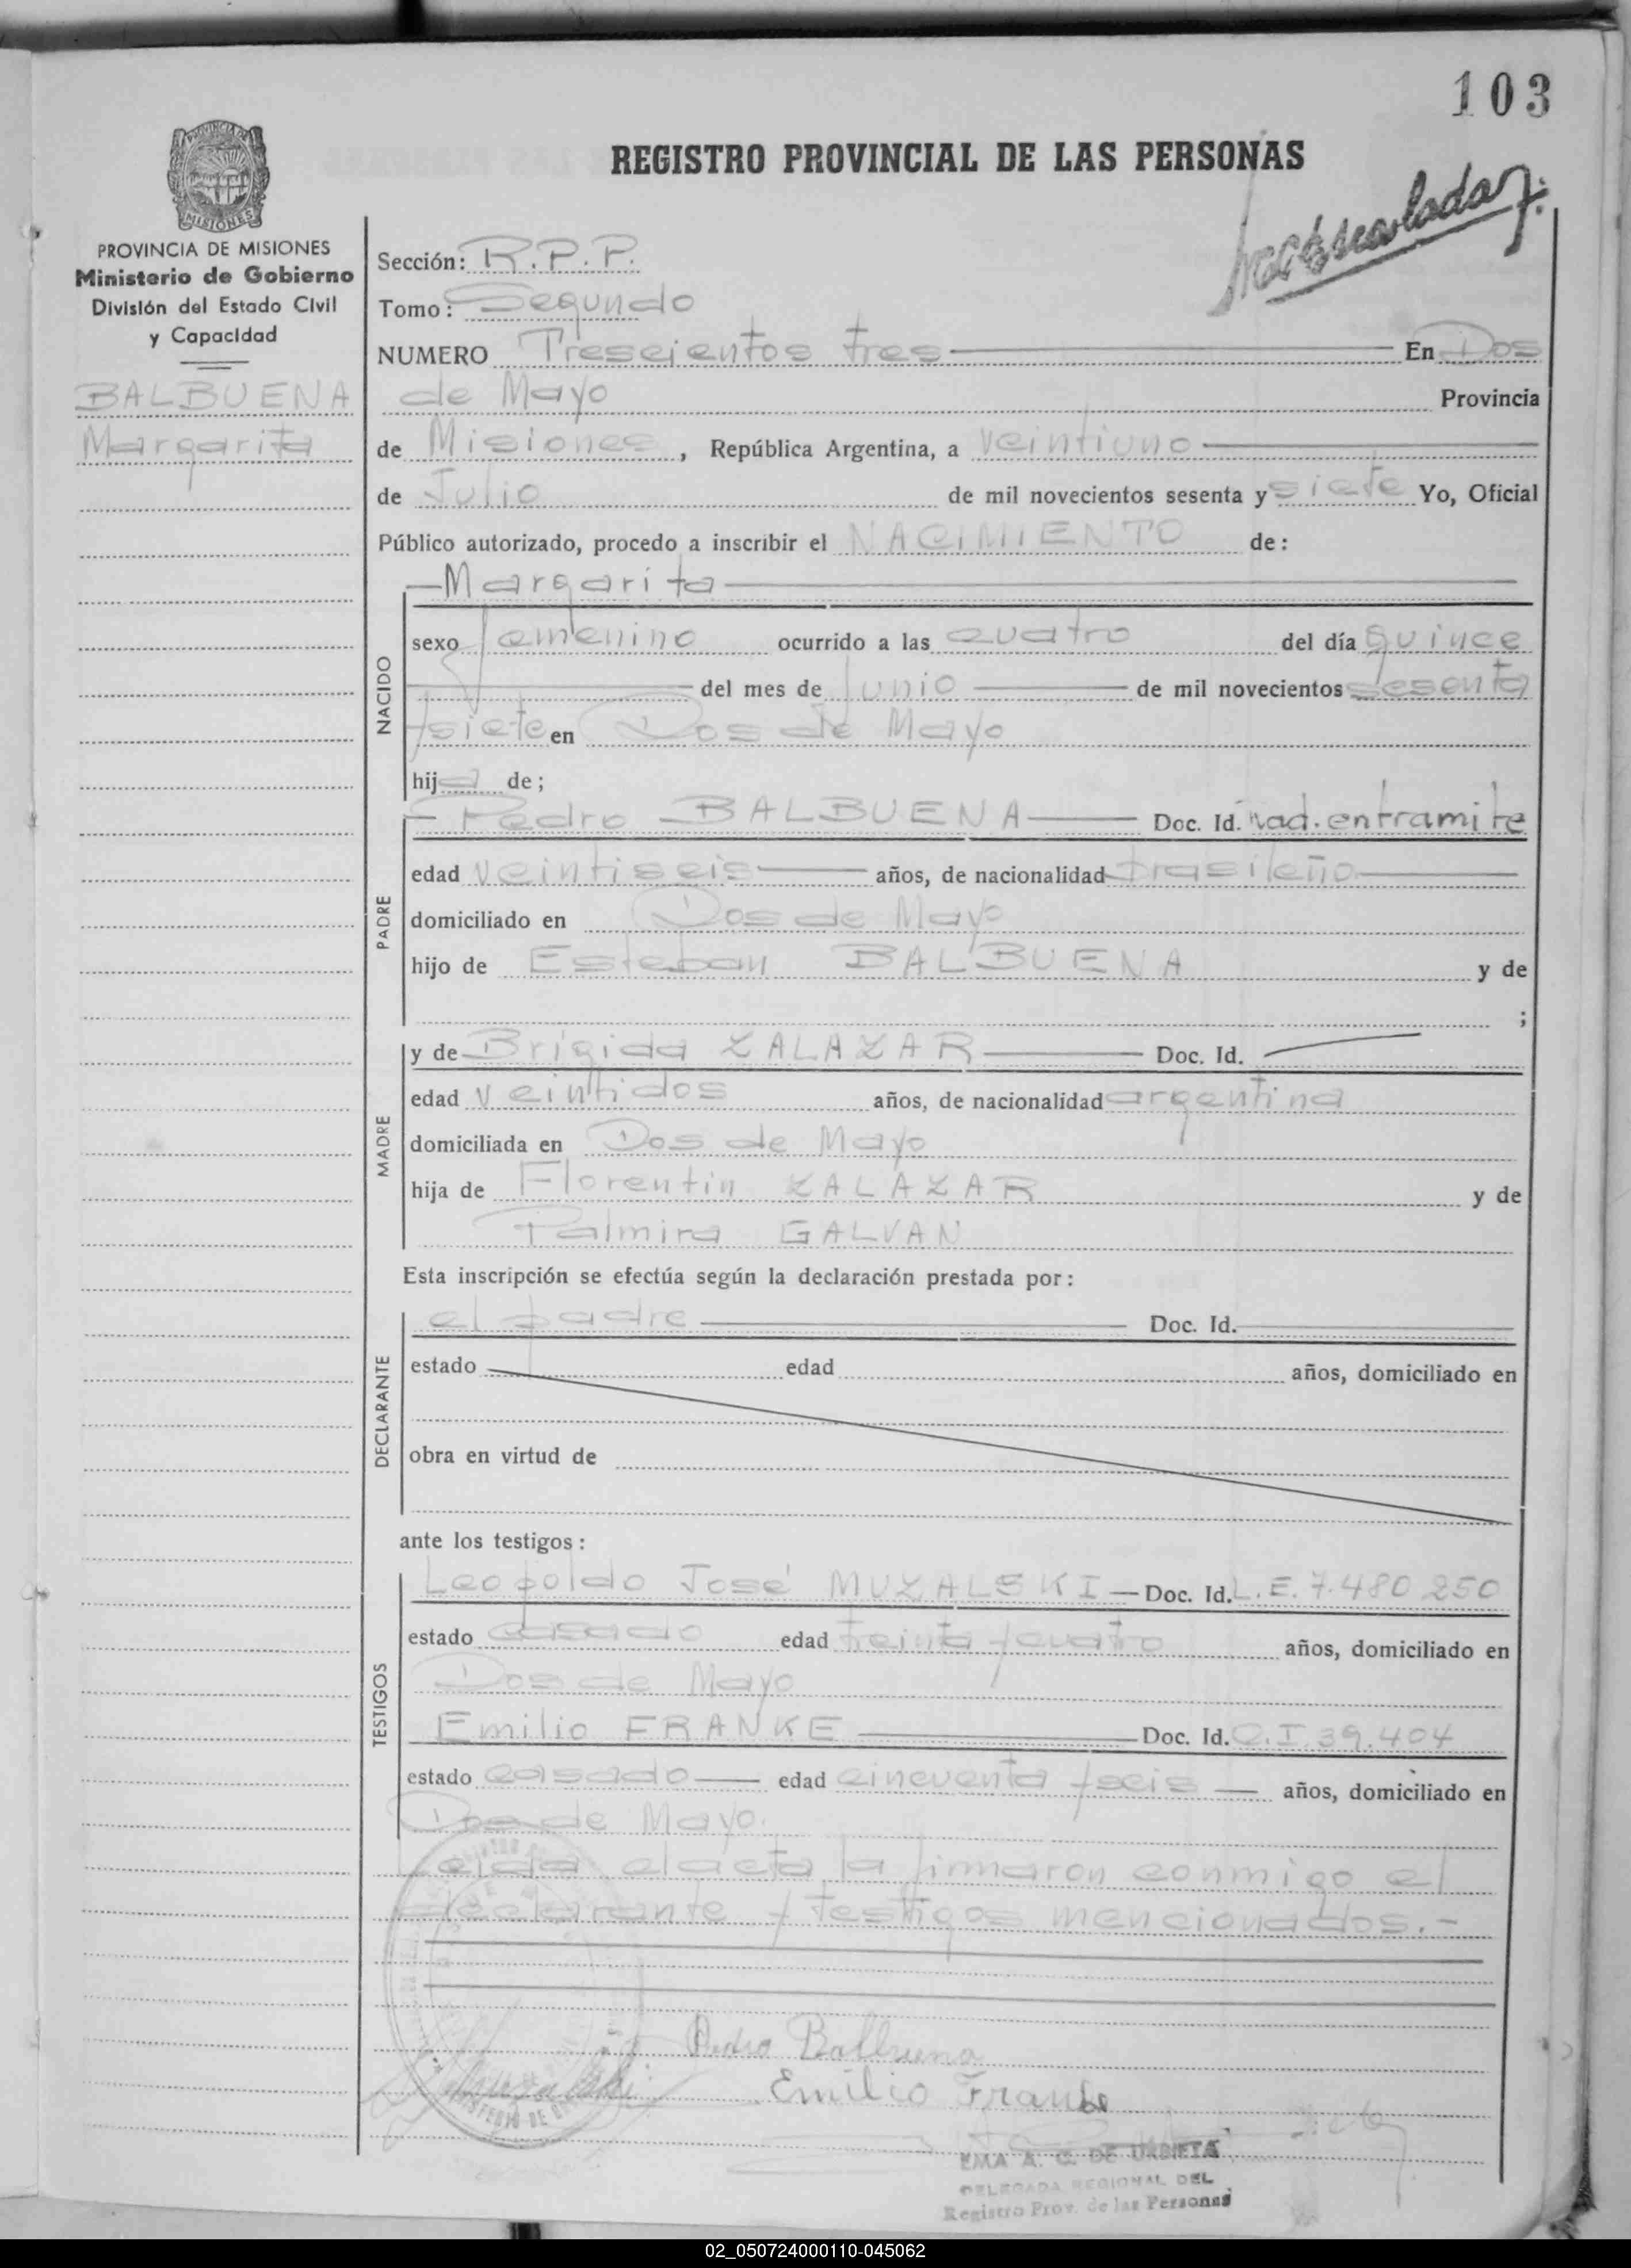 103
REGISTRO PROVINCIAL DE LAS PERSONAS
PROVINCIA DE MISIONES
MISIONES
PROVINCIA DE MISIONES
Ministerio de Gobierno
División del Estado Civil
y Capacidad
BALBUENA
Margarita
Sección: R.P.P.
Tomo: Segundo
NUMERO Trescientos tres En Dos
de Mayo Provincia
de Misiones, República Argentina, a veintiuno
de Julio de mil novecientos sesenta y siete Yo, Oficial
Público autorizado, procedo a inscribir el NACIMIENTO de:
NACIDO
Margarita
sexo femenino ocurrido a las cuatro del día quince
del mes de junio de mil novecientos sesenta
y siete en Dos de Mayo
hija de;
PADRE
Pedro BALBUENA Doc. Id. rad. en tramite
edad veintiseis años, de nacionalidad brasileño
domiciliado en Dos de Mayo
hijo de Esteban BALBUENA y de
;
MADRE
y de Brígida ZALAZAR Doc. Id.
edad veintidos años, de nacionalidad argentina
domiciliada en Dos de Mayo
hija de Florentin ZALAZAR y de
Palmira GALVAN
Esta inscripción se efectúa según la declaración prestada por:
DECLARANTE
el padre Doc. Id.
estado edad años, domiciliado en
obra en virtud de
ante los testigos:
TESTIGOS
Leopoldo José MUZALSKI Doc. Id. L.E. 7.480.250
estado casado edad treinta y cuatro años, domiciliado en
Dos de Mayo
Emilio FRANKE Doc. Id. C.I. 39.404
estado casado edad cincuenta y seis años, domiciliado en
Dos de Mayo.
Leida el acta la firmaron conmigo el
declarante y testigos mencionados.-
Pedro Balbuena
Emilio Franke
EMA A. C. DE URBIETA
DELEGADA REGIONAL DEL
Registro Prov. de las Personas
02_050724000110-045062